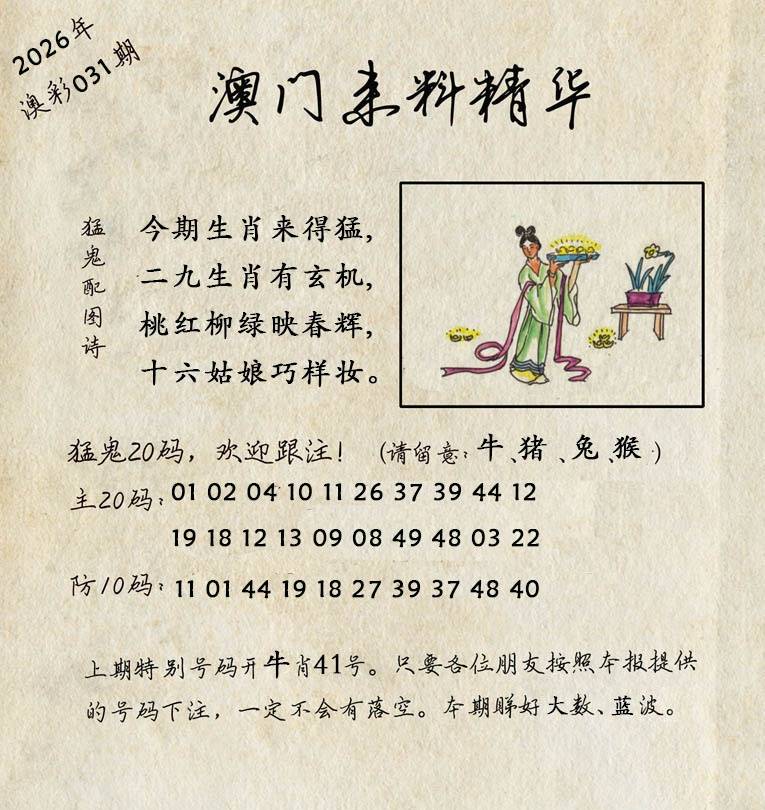 2026年
澳彩031期
澳门来料精华
猛鬼配图诗
今期生肖来得猛，
二九生肖有玄机，
桃红柳绿映春辉，
十六姑娘巧样妆。
猛鬼20码，欢迎跟注！（请留意：牛、猪、兔、猴）
主20码：01 02 04 10 11 26 37 39 44 12
19 18 12 13 09 08 49 48 03 22
防10码：11 01 44 19 18 27 39 37 48 40
上期特别号码开牛肖41号。只要各位朋友按照本报提供
的号码下注，一定不会有落空。本期睇好大数、蓝波。